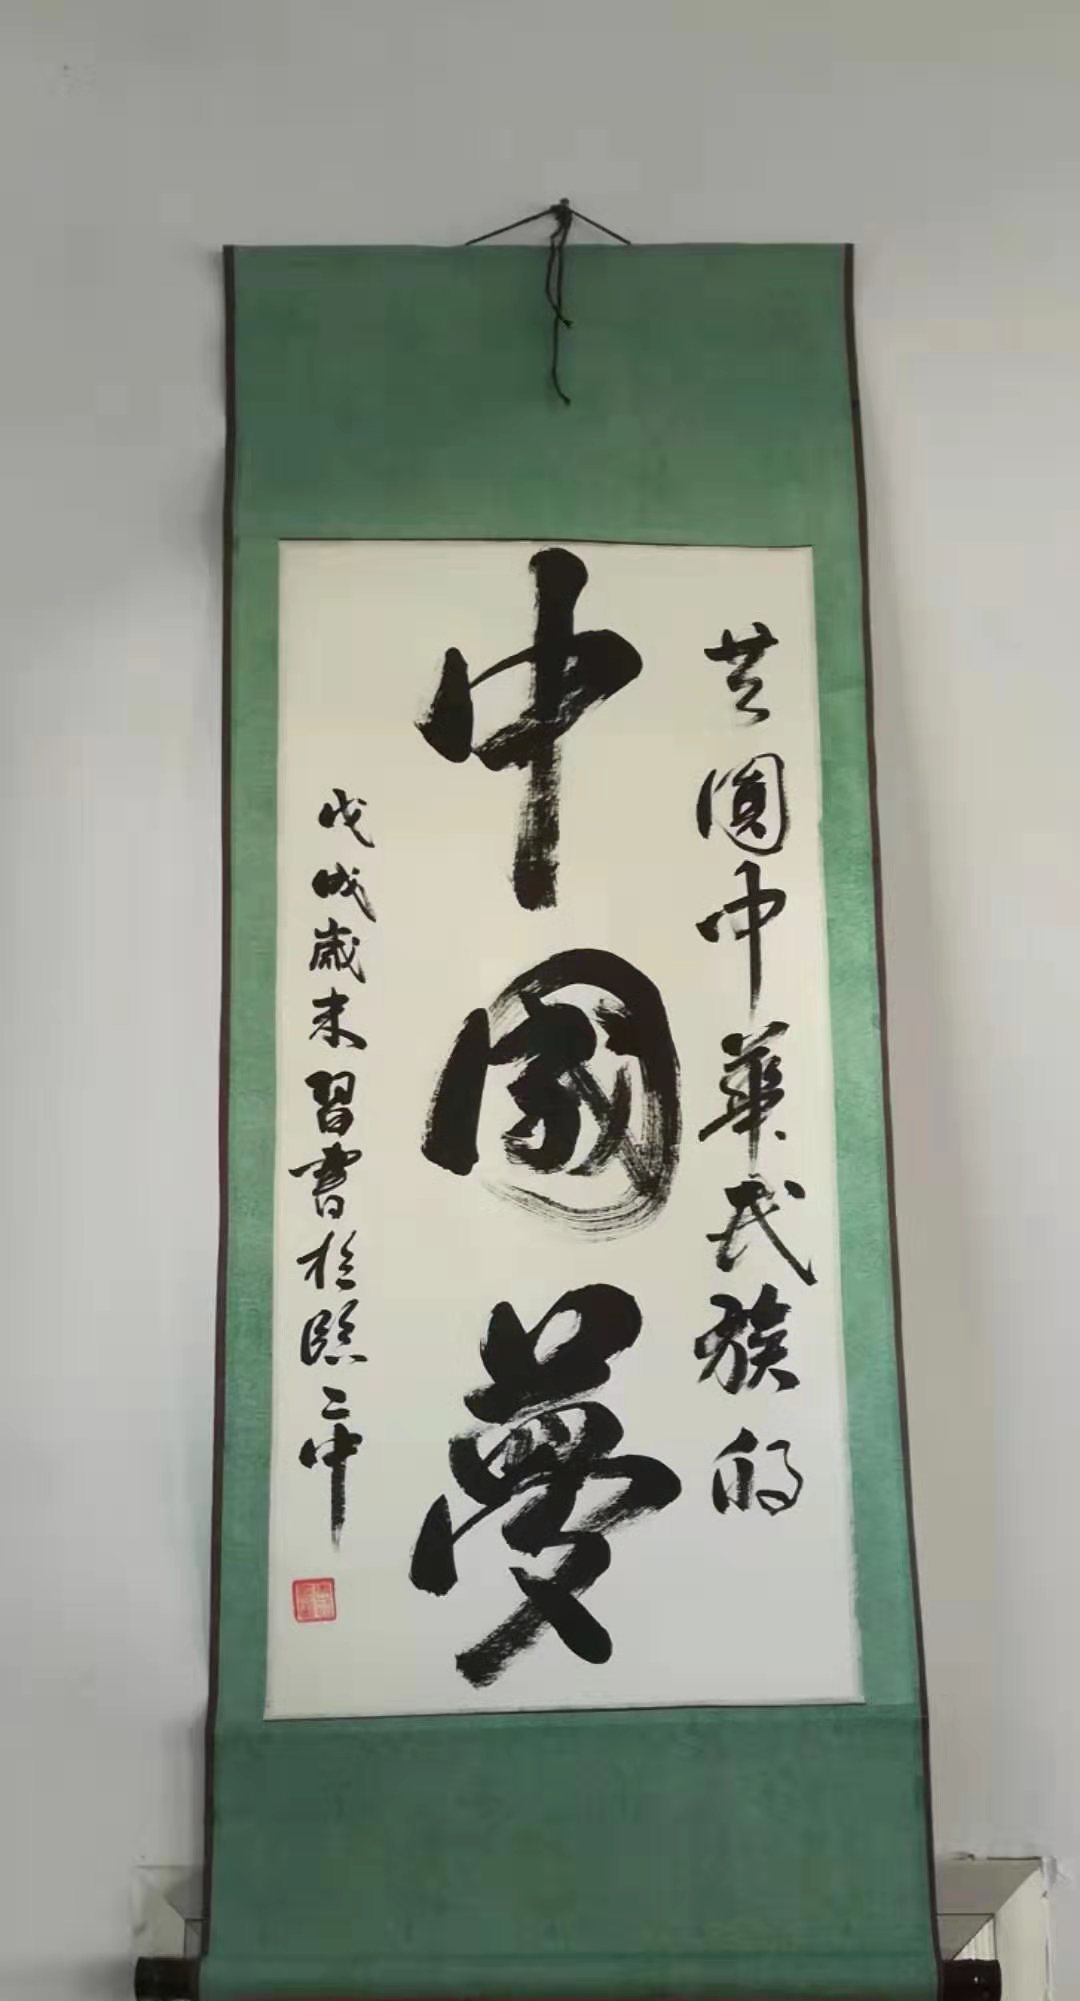 共圓中華民族的
中國夢
戊戌歲末習書於臨二中